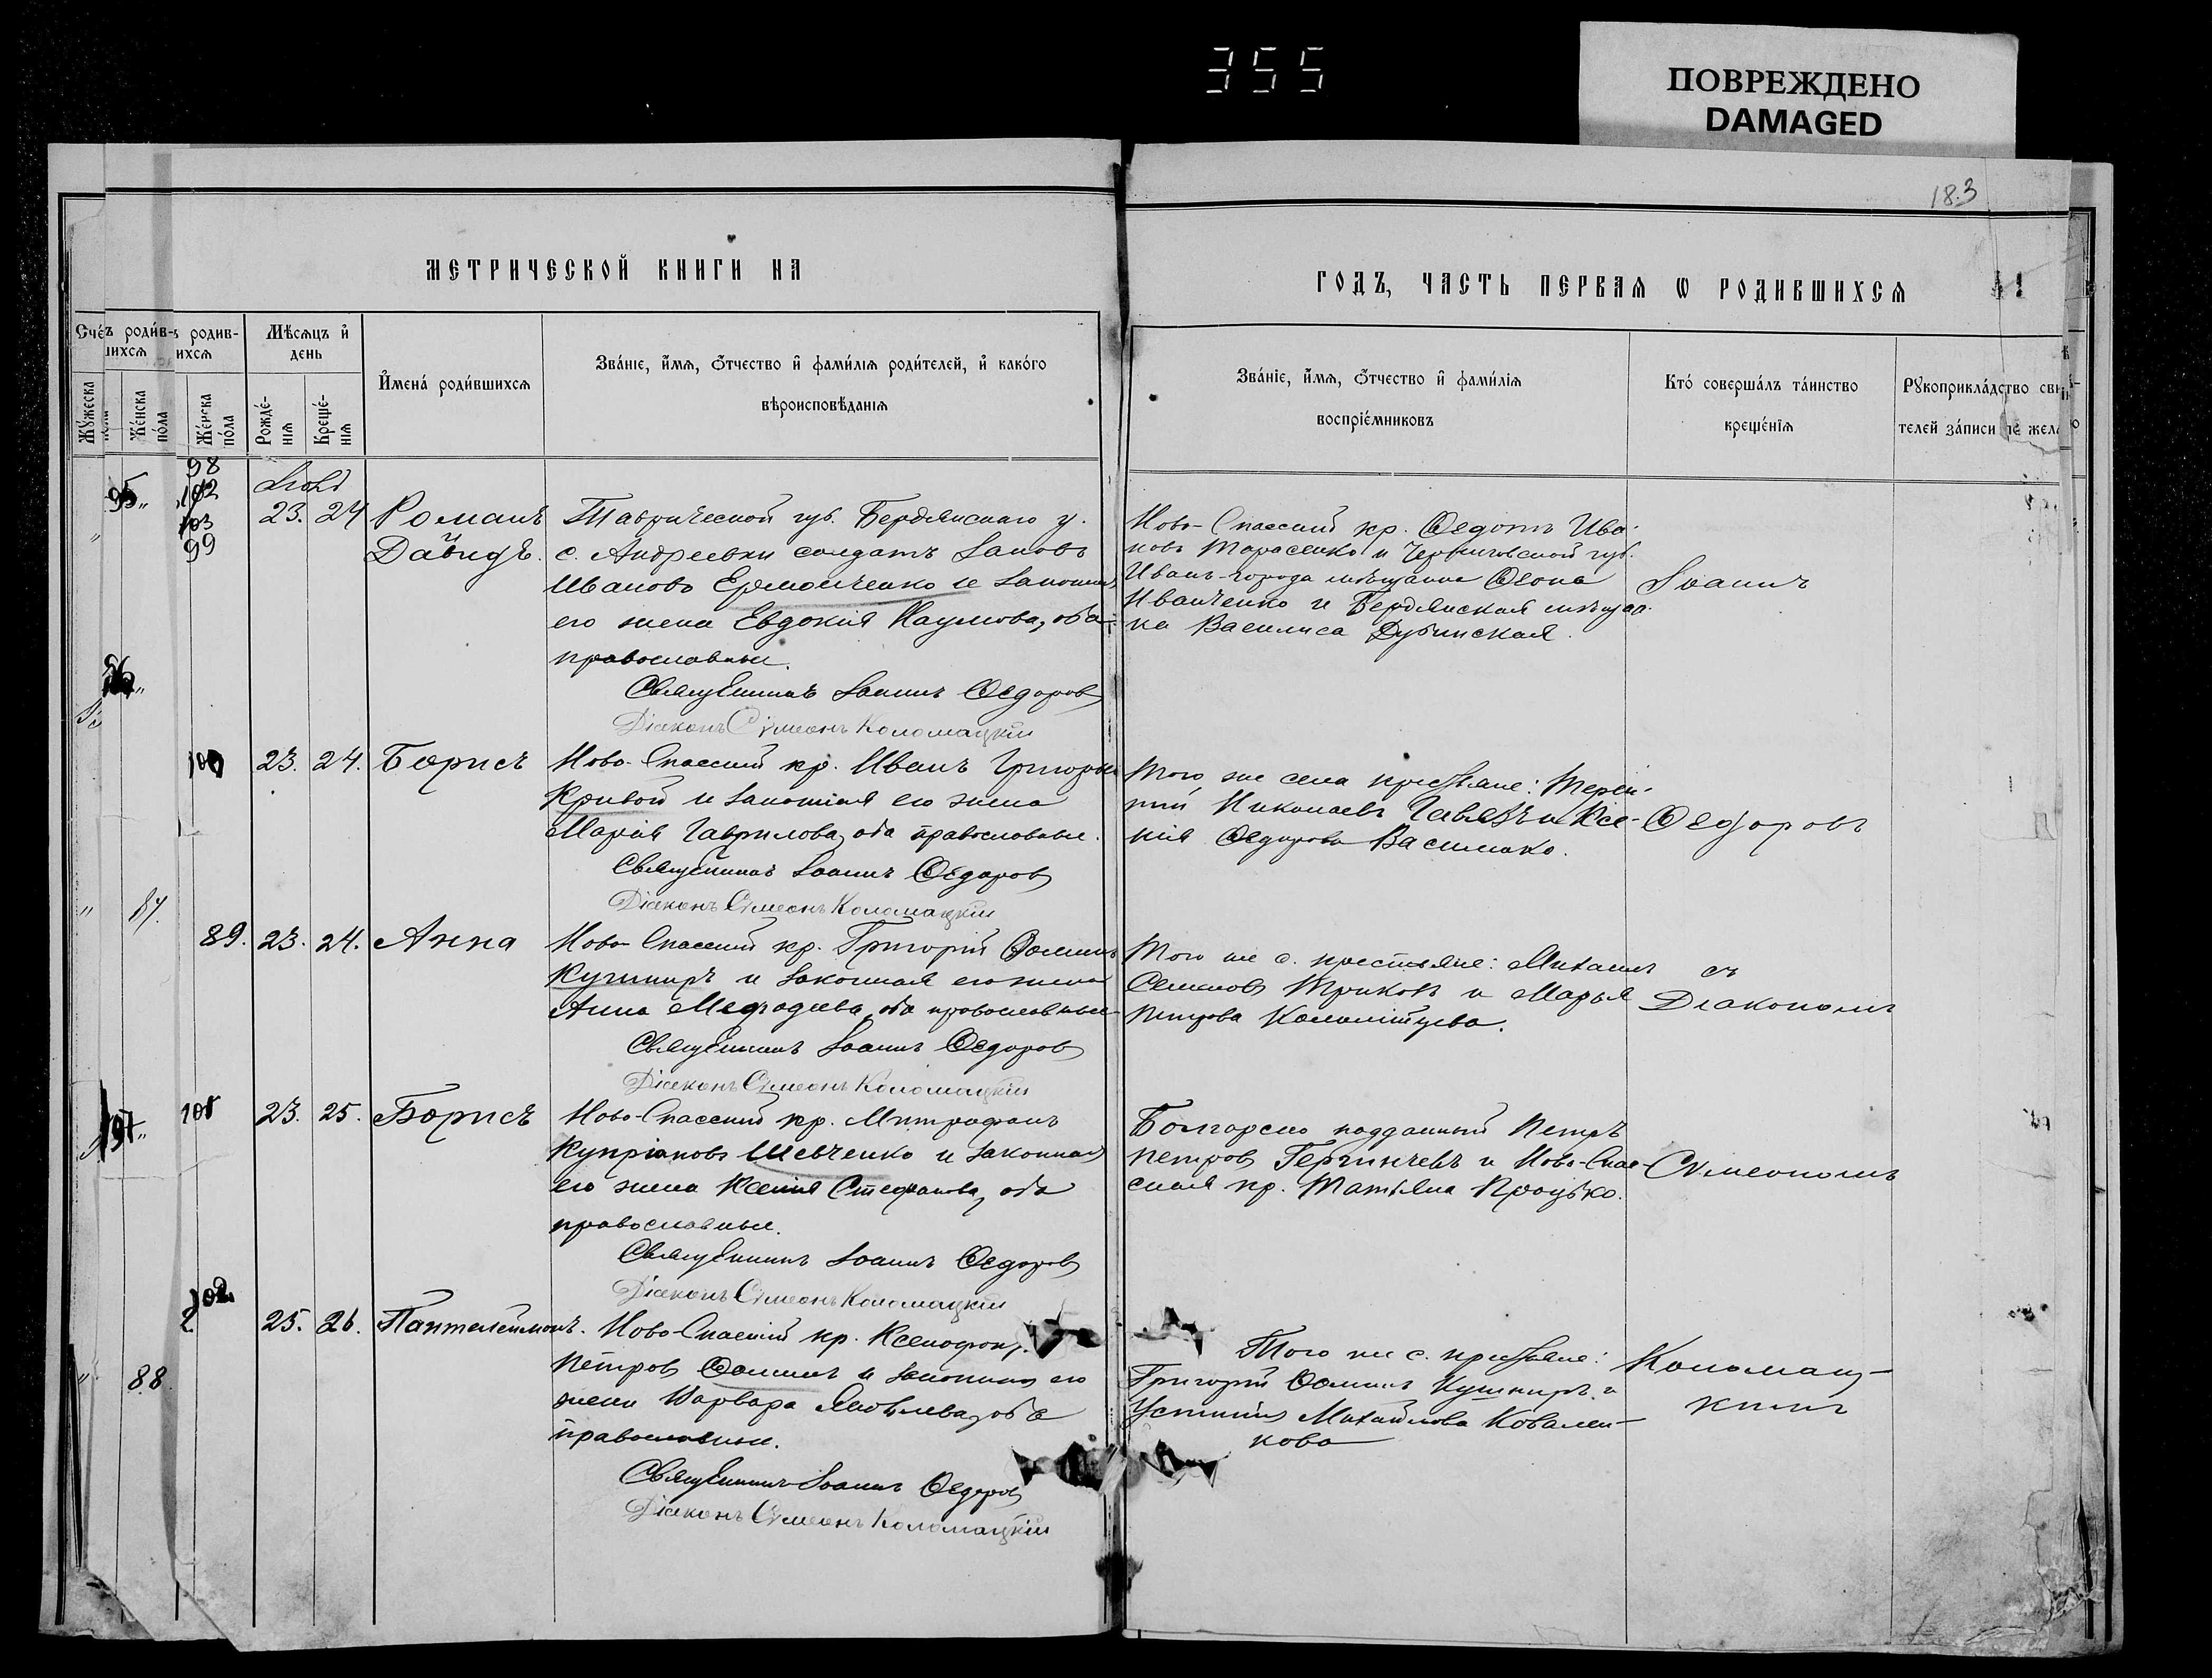 355
ПОВРЕЖДЕНО
DAMAGED
183
МЕТРИЧЕСКОЙ КНИГИ НА
ГОДЪ, ЧАСТЬ ПЕРВАЯ Ѡ РОДИВШИХСЯ
Счетъ родив-
шихся
ъ родив-
ихся
Мѣсяцъ и
день
Имена родившихся
Званіе, имя, отчество и фамилія родителей, и какого
вѣроисповѣданія
Званіе, имя, отчество и фамилія
воспріемниковъ
Кто совершалъ таинство
крещенія
Рукоприкладство сви
телей записи по жела
Мужеска
пола
Женска
пола
Женска
пола
Рожде-
нія
Креще-
нія
98
102
103
99
95
Іюль
23. 24 Романъ
Давидъ.
Таврической губ. Бердянскаго у.
с. Андреевки солдатъ Іаковъ
Ивановъ Ермольченко и законная
его жена Евдокія Наумова, оба
православные.
Священникъ Іоаннъ Ѳедоровъ
Діаконъ Сѵмеонъ Коломацкій
Ново-Спасскій кр. Ѳедотъ Ива-
новъ Тарасенко и Черниговской губ.
Иванченко и Бердянская мѣщан-
ка Василиса Дубинская.
Іоаннъ
100 23. 24. Борисъ
Ново-Спасскій кр. Иванъ Григорьевъ
Кривой и законная его жена
Марія Гаврилова, оба православные.
Священникъ Іоаннъ Ѳедоровъ
Діаконъ Сѵмеонъ Коломацкій
Того же села крестьяне: Терен-
тій Николаевъ и Ксе-
нія Ѳедорова Василько.
Ѳедоровъ
87.
89. 23. 24. Анна
Ново-Спасскій кр. Григорій Ѳоминъ
Кушниръ и законная его жена
Анна Меѳодіева, оба православные
Священникъ Іоаннъ Ѳедоровъ
Діаконъ Сѵмеонъ Коломацкій
Того же с. крестьяне: Михаилъ
Семеновъ и Марья
Петрова Коломійцева.
съ
Діакономъ
97
101 23. 25. Борисъ
Ново-Спасскій кр. Митрофанъ
Купріановъ Шевченко и законная
его жена Ксенія Стефанова, оба
православные.
Священникъ Іоаннъ Ѳедоровъ
Діаконъ Сѵмеонъ Коломацкій
Болгарско подданный Петръ
Петровъ и Ново-Спас-
ская кр. Татьяна Процько.
Сѵмеономъ
102 25. 26. Пантелеймонъ.
Ново-Спасскій кр. Ксенофонт
Петровъ Ѳоминъ и законная его
жена Варвара Яковлева, оба
православные.
Священникъ Іоаннъ Ѳедоровъ
Діаконъ Сѵмеонъ Коломацкій
88
Того же с. крестьяне:
Григорій Ѳоминъ Кушниръ и
Устинія Михайлова Ковален-
кова
Коломац-
кимъ